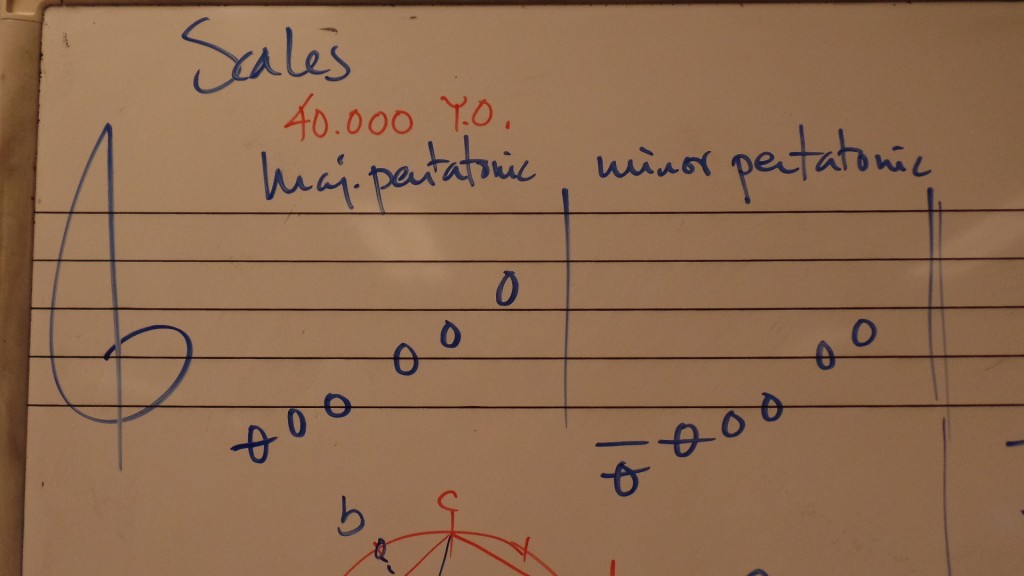 Scales
40.000 Y.O.
Maj. pentatonic
minor pentatonic
b
C